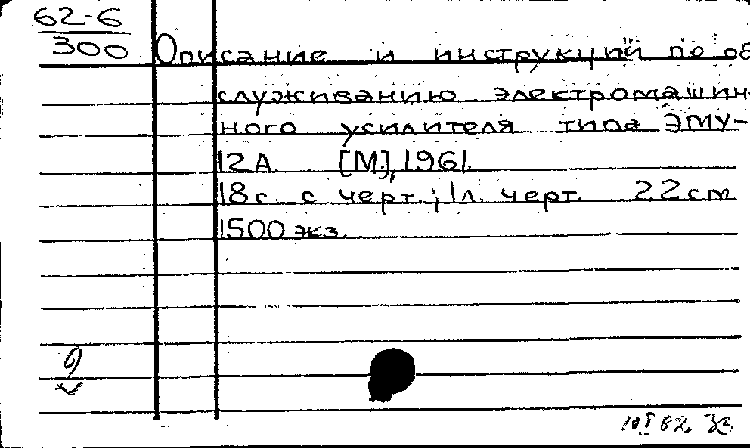 62-6
300
Описание и инструкций по об
служиванию электромашин-
ного усилителя типа ЭМУ-
12А. [М], 1961.
18с с черт.; 1л. черт. 22см
1500 экз.